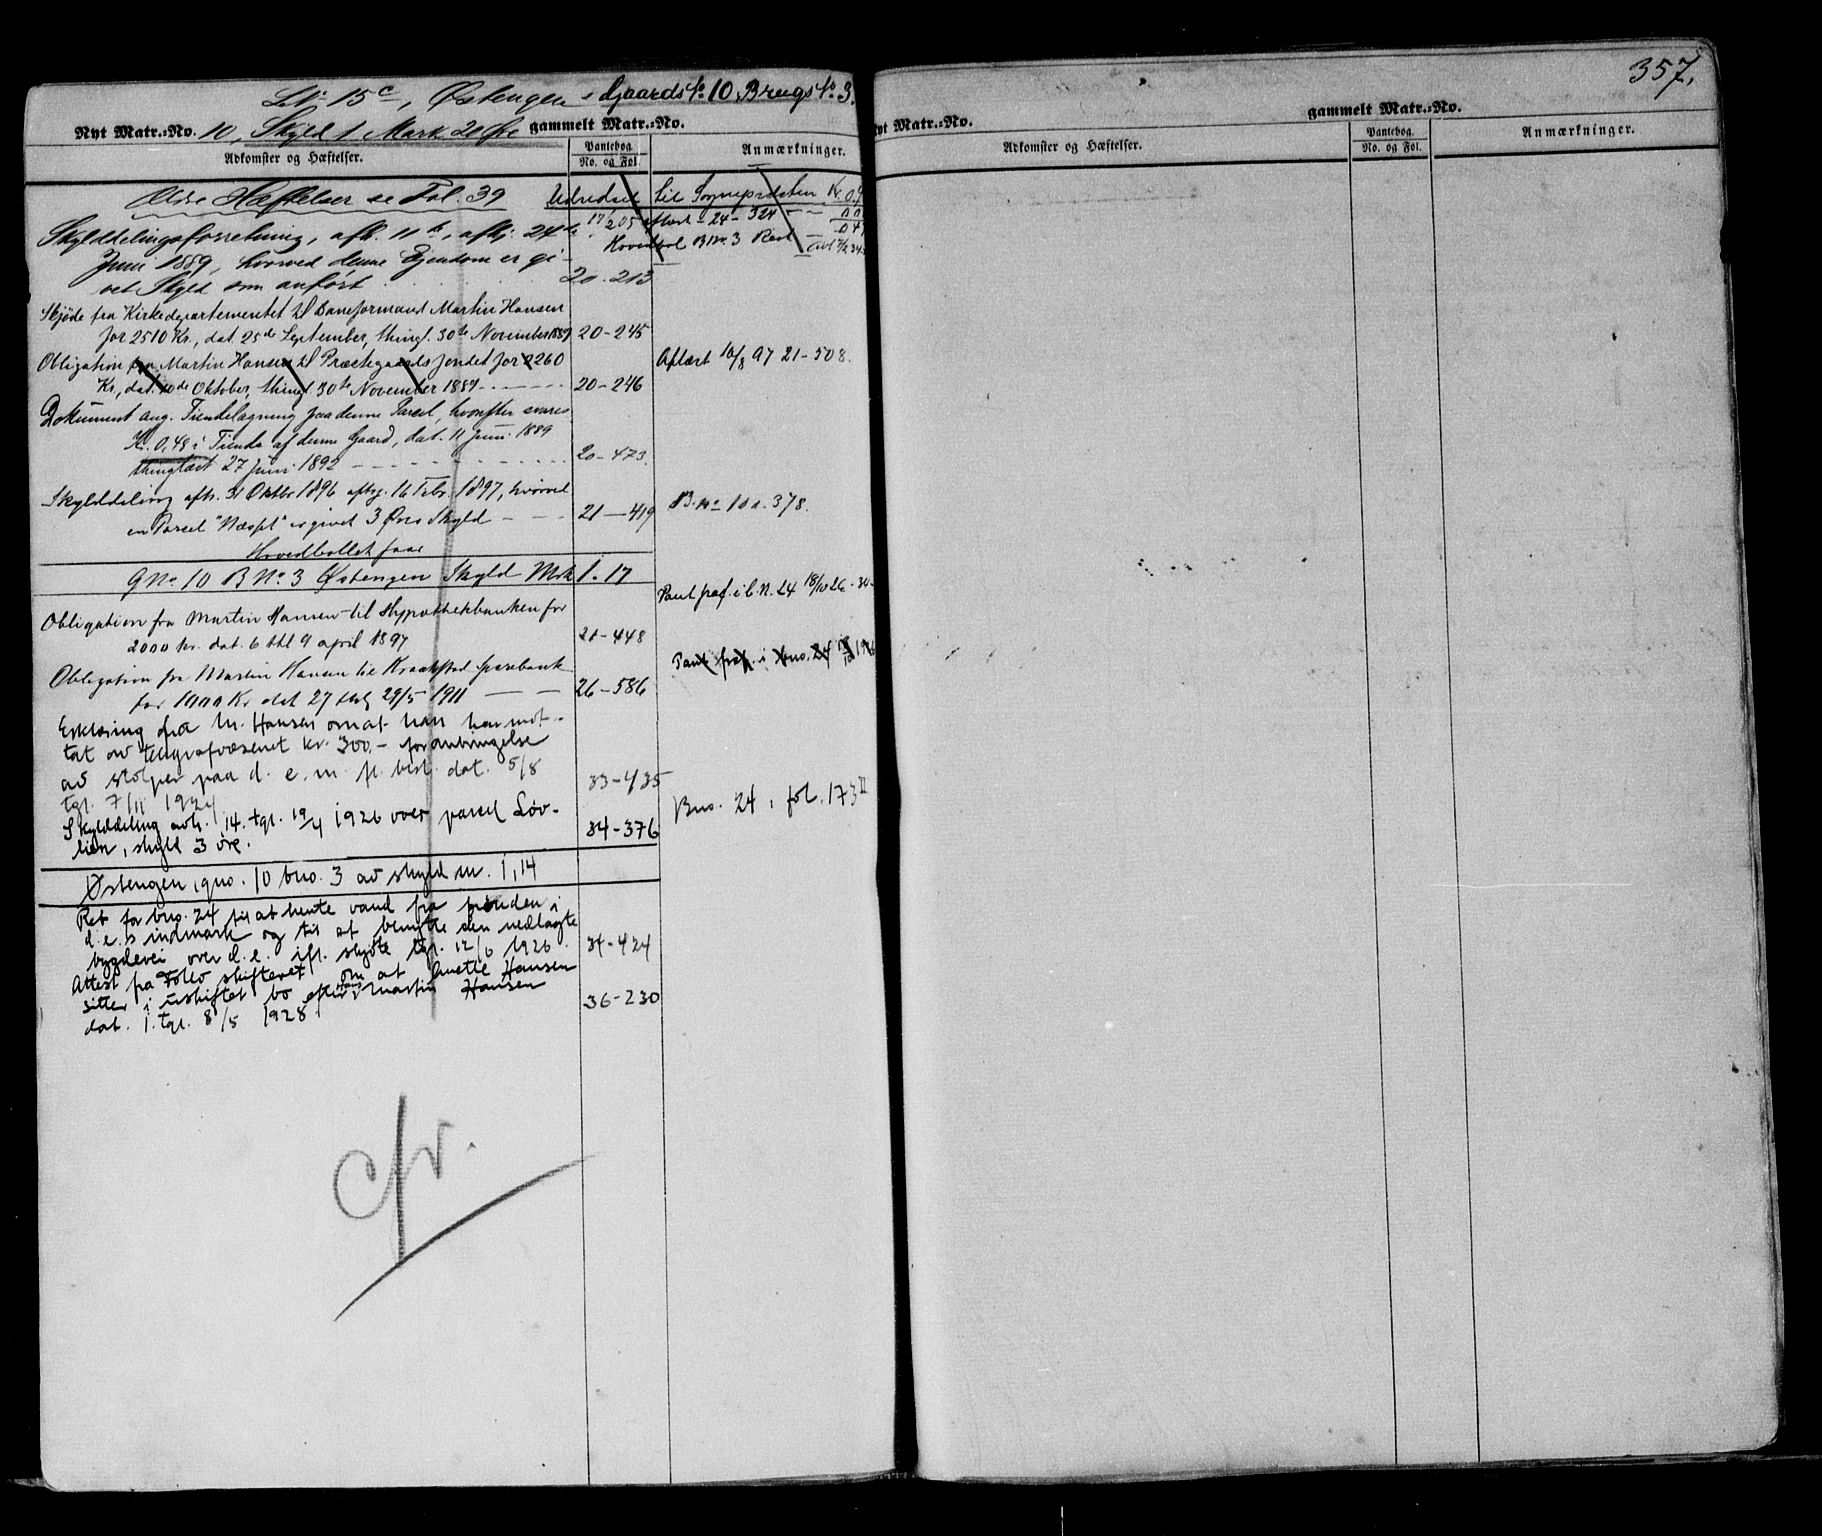 L.No 15c, Østengen - Gaards No 10 Brugs No 3.
Nyt Matr.-No. 10, Skyld 1 Mark 20 Øre gammelt Matr.-No.
Adkomster og Hæftelser.
Pantebog.
No. og Fol.
Anmærkninger.
Ældre Hæftelser se Fol. 39
Udredsel til Sognepræsten Kr.
17/2 05 afløst - 24 - 324
Hovedbol B No. 3 Rest
Skylddelingsforretning, afh. 11te, afhj. 24de
Juni 1889, hvorved denne Ejendom er gi-
vet Skyld som anført 20-213
Skjøde fra Kirkedepartementet til Baneformand Martin Hansen
for 2510 Kr., dat 25de September, thingl. 30te November 1889 20-245
Obligation fra Martin Hansen til Præstegaardsfondet for 2260
Kr., dat. 10de Oktober, thingl 30te November 1889 20-246
Aflæst 10/8 97 21-508.
Dokument ang. Tiendelægning paa denne Parcel, hvorefter svares
Kr. 0,48 i Tiende af denne Gaard, dat. 11 Juni 1889
thinglæst 27 Juni 1892 20-473.
Skylddeling afh. 31 Oktbr 1896 afhj. 16 Febr. 1897, hvorved
en Parcel "Næsset" er givet 3 Øres Skyld 21-419
B.No 10 a. 378.
Hovedbøllet faar
G No. 10 B No. 3 Østengen Skyld Mrk 1.17
Obligation fra Martin Hansen til Hypothekbanken for
2000 kr. dat. 6 thl 9 april 1897 21-448
Pant fraf. i b.N. 24 18/10 26 - 34-
Obligation fra Martin Hansen til Kraakstad sparebank
for 1000 Kr dat 27 thl 29/5 1911 26-586
Pant fraf. i bno. 24
Erklæring fra M. Hansen om at han har mot-
tat av telegrafvæsenet kr. 300.- for anbringelse
av stolper paa d. e. m. fl. best. dat. 5/8
tgl. 7/11 1924 33-435
Skylddeling avh. 14. tgl. 19/4 1926 over parsel Løv-
lien, skyld 3 øre. 34-376
Bno. 24, fol. 173 II
Østengen, gno. 10 bno. 3 av skyld m. 1,14
Ret for bno. 24 til at hente vand fra brønden i
d.e.s indmark og til at benytte den nedlagte
bygdevei over d.e. ifl. skjøte tgl. 12/6 1926. 34-424
Attest fra Follo skifteret om at Anette Hansen
sitter i uskiftet bo efter mann Martin Hansen
dat. 1. tgl. 8/5 1928. 36-230
cfr.
357.
Nyt Matr.-No.
gammelt Matr.-No.
Adkomster og Hæftelser.
Pantebog.
No. og Fol.
Anmærkninger.